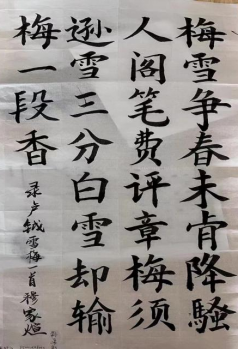 梅雪争春未肯降骚
人阁笔费评章梅须
逊雪三分白雪却输
梅一段香
录卢钺雪梅一首穆家煊